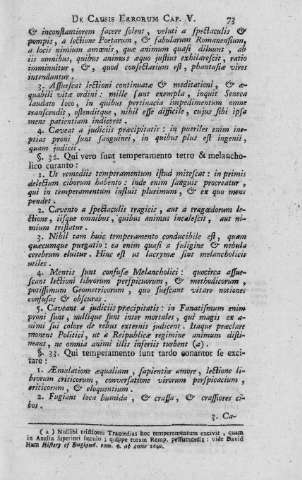 DE CAUSIS ERRORUM CAP. V. 73
& inconstantiorem facere solent, veluti a spectaculis &
pompis, a lectione Poetarum, & fabularum Romanensium,
a locis nimium amœnis, quæ animum quasi diluunt, ab
iis omnibus, quibus animus æquo justius exhilarescit, ratio
imminuitur, &, quod consectarium est, phantasiæ vires
intenduntur.
3. Assuescat lectioni continuatæ & meditationi, & æ-
quabili vitæ ordini: mille sunt exempla, inquit Seneca
laudato loco, in quibus pertinacia impedimentum omne
transcendit, ostenditque, nihil esse difficile, cujus sibi ipsa
mens patientiam indiceret.
4. Caveat a judiciis præcipitatis: in pueriles enim ine-
ptias proni sunt sanguinei, in quibus plus est ingenii,
quam judicii.
§. 32. Qui vero sunt temperamento tetro & melancho-
lico curanto:
1. Ut remediis temperamentum istud mitescat: in primis
delectum ciborum habento: inde enim sanguis procreatur,
qui in temperamentum influit plurimum, & ex quo mens
pendet.
2. Cavento a spectaculis tragicis, aut a tragœdorum le-
ctione, iisque omnibus, quibus animus incalescit, aut ni-
mium tristatur.
3. Nihil tam huic temperamento conducibile est, quam
quæcumque purgatio: ea enim quasi a fuligine & nebula
cerebrum eluitur. Hinc est ut lacrymæ sint melancholicis
utiles.
4. Mentis sunt confusæ Melancholici: quocirca assue-
scant lectioni librorum perspicuorum, & methodicorum,
potissimum Geometricorum, quo suescant vitare notiones
confusas & obscuras.
5. Caveant a judiciis præcipitatis: in Fanatismum enim
proni sunt, nullique sunt inter mortales, qui magis ex a-
nimi sui colore de rebus externis judicent. Itaque præclare
monent Politici, ut a Reipublicæ regimine animum disti-
neant, ne omnia animi illis inferiis turbent (a).
§. 33. Qui temperamento sunt tardo conantor se exci-
tare:
1. Æmulatione æqualium, sapientiæ amore, lectione li-
brorum criticorum, conversatione virorum perspicacium,
criticorum, & eloquentium.
2. Fugiant loca humida, & crassa, & crassiores ci-
bos.
3. Ca-
(a) Nullibi tristiores Tragœdias hoc temperamentum excivit, quam
in Anglia superiori sæculo; quippe totam Remp. pessumdedit: vide David
Hum History of England. tom. 6. ab anno 1640.